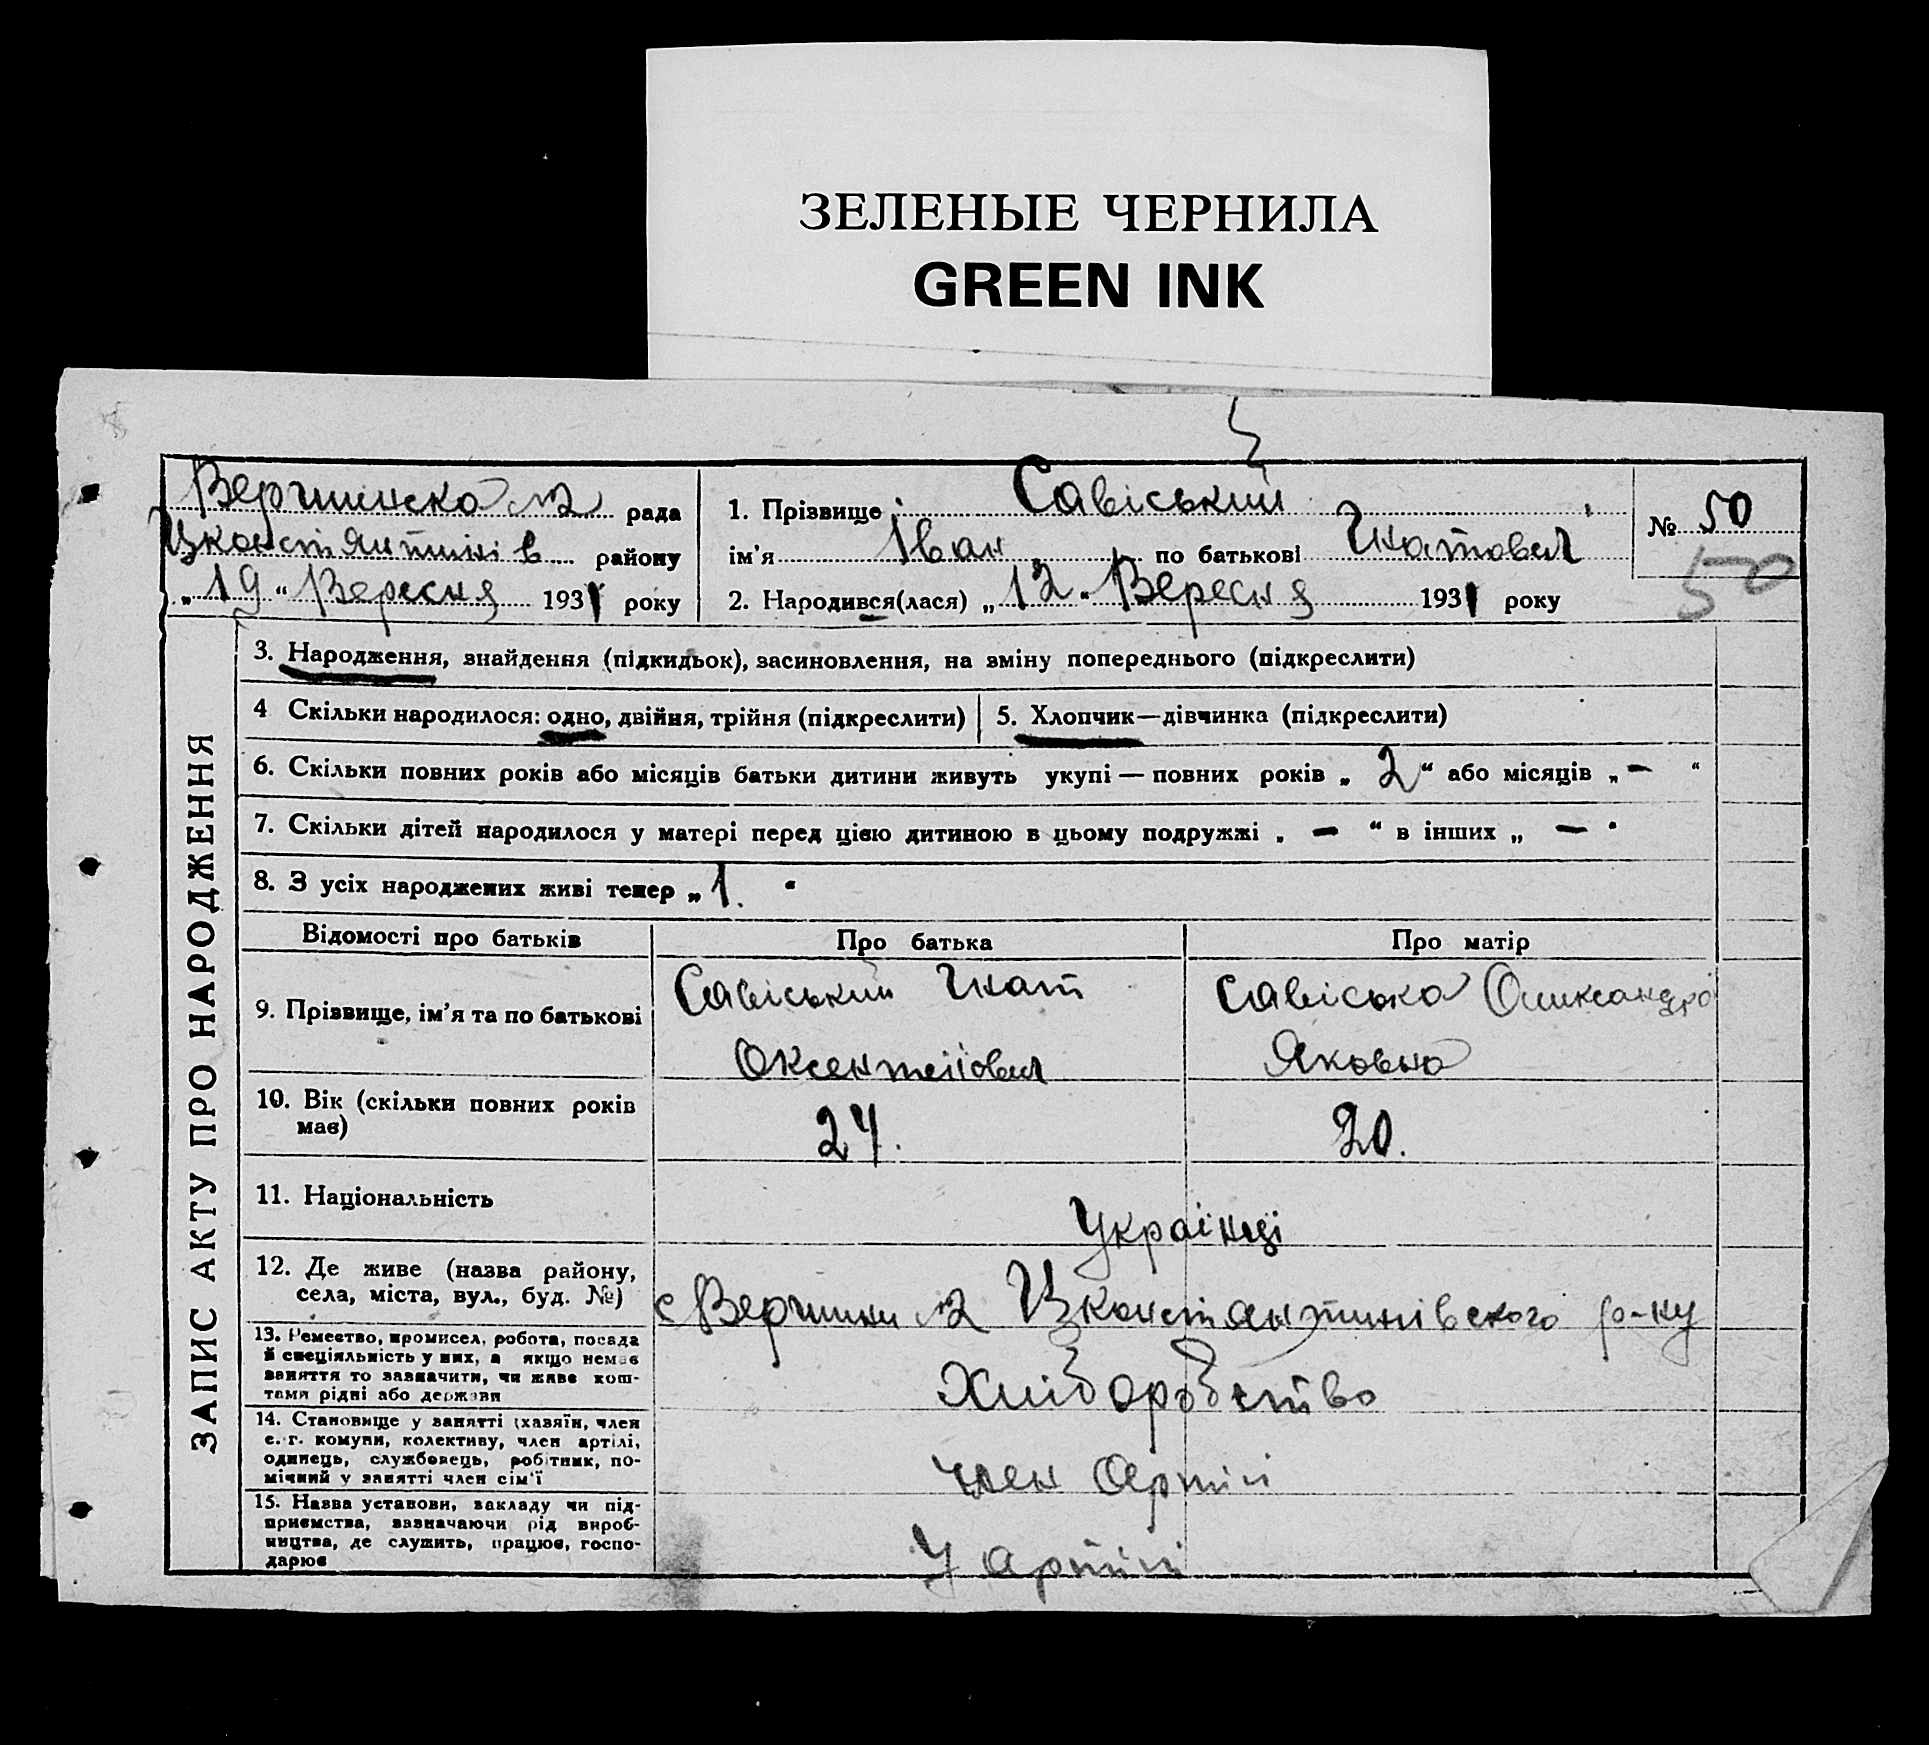 ЗЕЛЕНЫЕ ЧЕРНИЛА
GREEN INK
Вершинска №2 рада
района
„19“ Вересня 1931 року
1. Прізвище Савіський
ім'я Іван по батькові Гнатович
2. Народився(лася) „12“ Вересня 1931 року
№ 50
50
ЗАПИС АКТУ ПРО НАРОДЖЕННЯ
3. Народження, знайдення (підкидьок), засиновлення, на зміну попереднього (підкреслити)
4 Скільки народилося: одно, двійня, трійня (підкреслити)
5. Хлопчик—дівчинка (підкреслити)
6. Скільки повних років або місяців батьки дитини живуть укупі — повних років „2“ або місяців „—“
7. Скільки дітей народилося у матері перед цією дитиною в цьому подружжі „—“ в інших „—“
8. З усіх народжених живі тепер „1.“
Відомості про батьків
Про батька
Про матір
9. Прізвище, ім'я та по батькові
Савіський Гнат
Оксентійович
Савіська Оликсандра
Яковна
10. Вік (скільки повних років
має)
24.
20.
11. Національність
Українці
12. Де живе (назва району,
села, міста, вул., буд. №)
с Вершини №2 р-ну
13. Ремество, промисел, робота, посада
й спеціяльність у них, а якщо немає
заняття то зазначити, чи живе кош-
тами рідні або держави
Хліборобство
14. Становище у занятті (хазяїн, член
с.-г. комуни, колективу, член артілі,
одинець, службовець, робітник, по-
мічний у занятті член сім'ї
член Артілі
15. Назва установи, закладу чи під-
приємства, зазначаючи рід вироб-
ництва, де служить, працює, госпо-
дарює
У артілі